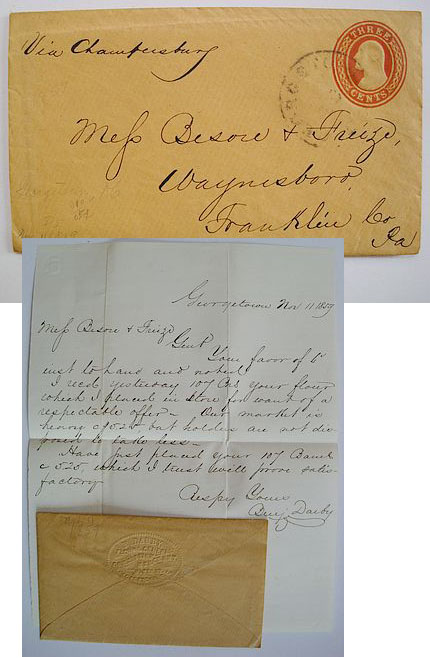 Via Chambersburg
THREE
CENTS
Mess Besore & Freize,
Waynesboro,
Franklin Co
Pa
Georgetown Nov 11 1859
Mess Besore & Frieze
Gent
Your favor of
inst to hand and noted
I recd yesterday 107 your flour
which I placed in store for want of a
respectable offer - Our market is
heavy @ 5.25 but holders are not dis
posed to take less -
Have just placed your 107
@ 5.25 which I trust will prove satis-
factory
Respy Yours
Benj Darby